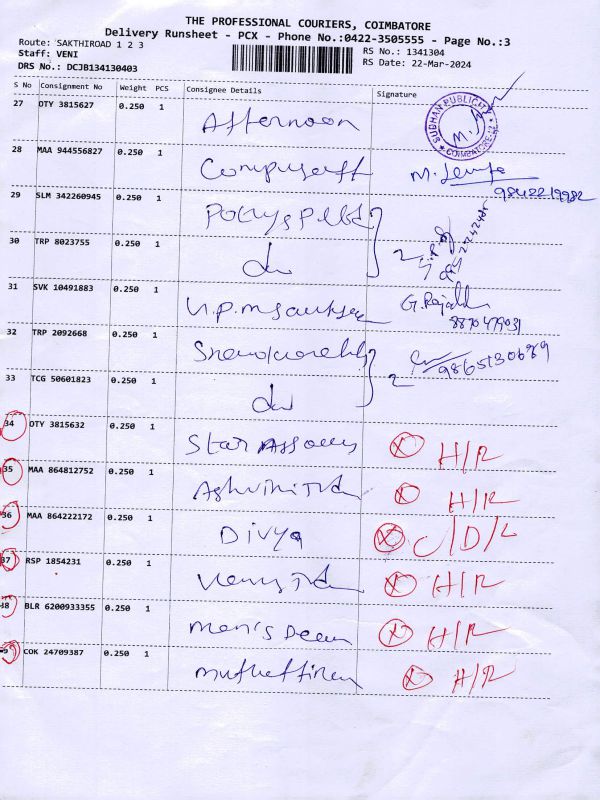 THE PROFESSIONAL COURIERS, COIMBATORE
Delivery Runsheet - PCX - Phone No.:0422-3505555 - Page No.:3
Route: SAKTHIROAD 1 2 3
Staff: VENI
RS No.: 1341304
DRS No.: DCJB134130403
RS Date: 22-Mar-2024
S No Consignment No Weight PCS Consignee Details Signature
27 OTY 3815627 0.250 1 Afternoon
SUDHAN PUBLICITY
COIMBATORE
28 MAA 944556827 0.250 1 Compusoft M.
9842219982
29 SLM 342260945 0.250 1
30 TRP 8023755 0.250 1 do 2
31 SVK 10491883 0.250 1 G. Rajal
8870479031
32 TRP 2092668 0.250 1
9865130689
33 TCG 50601823 0.250 1 do 2
34 OTY 3815632 0.250 1 Star X H/R
35 MAA 864812752 0.250 1 Ashvini X H/R
36 MAA 864222172 0.250 1 Divya X C/D/L
37 RSP 1854231 0.250 1 X H/R
38 BLR 6200933355 0.250 1 Men's X H/R
39 COK 24709387 0.250 1 X H/R